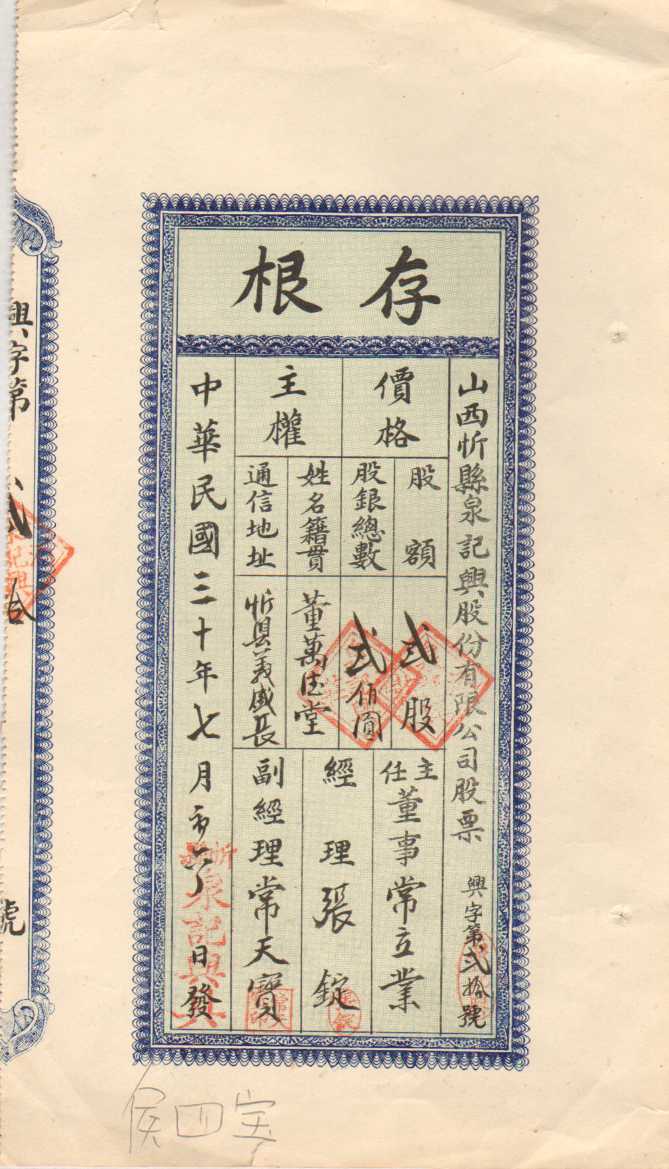 存根
山西忻縣泉記興股份有限公司股票 興字第弍拾號
價格
股額
弍股
股銀總數
弍佰圓
主權
姓名籍貫
董萬德堂
通信地址
忻县義盛長
主任董事常立業
經理張錠
副經理常天寶
中華民國三十年七月 日發
泉記興
興字第弍拾號
侯四宝